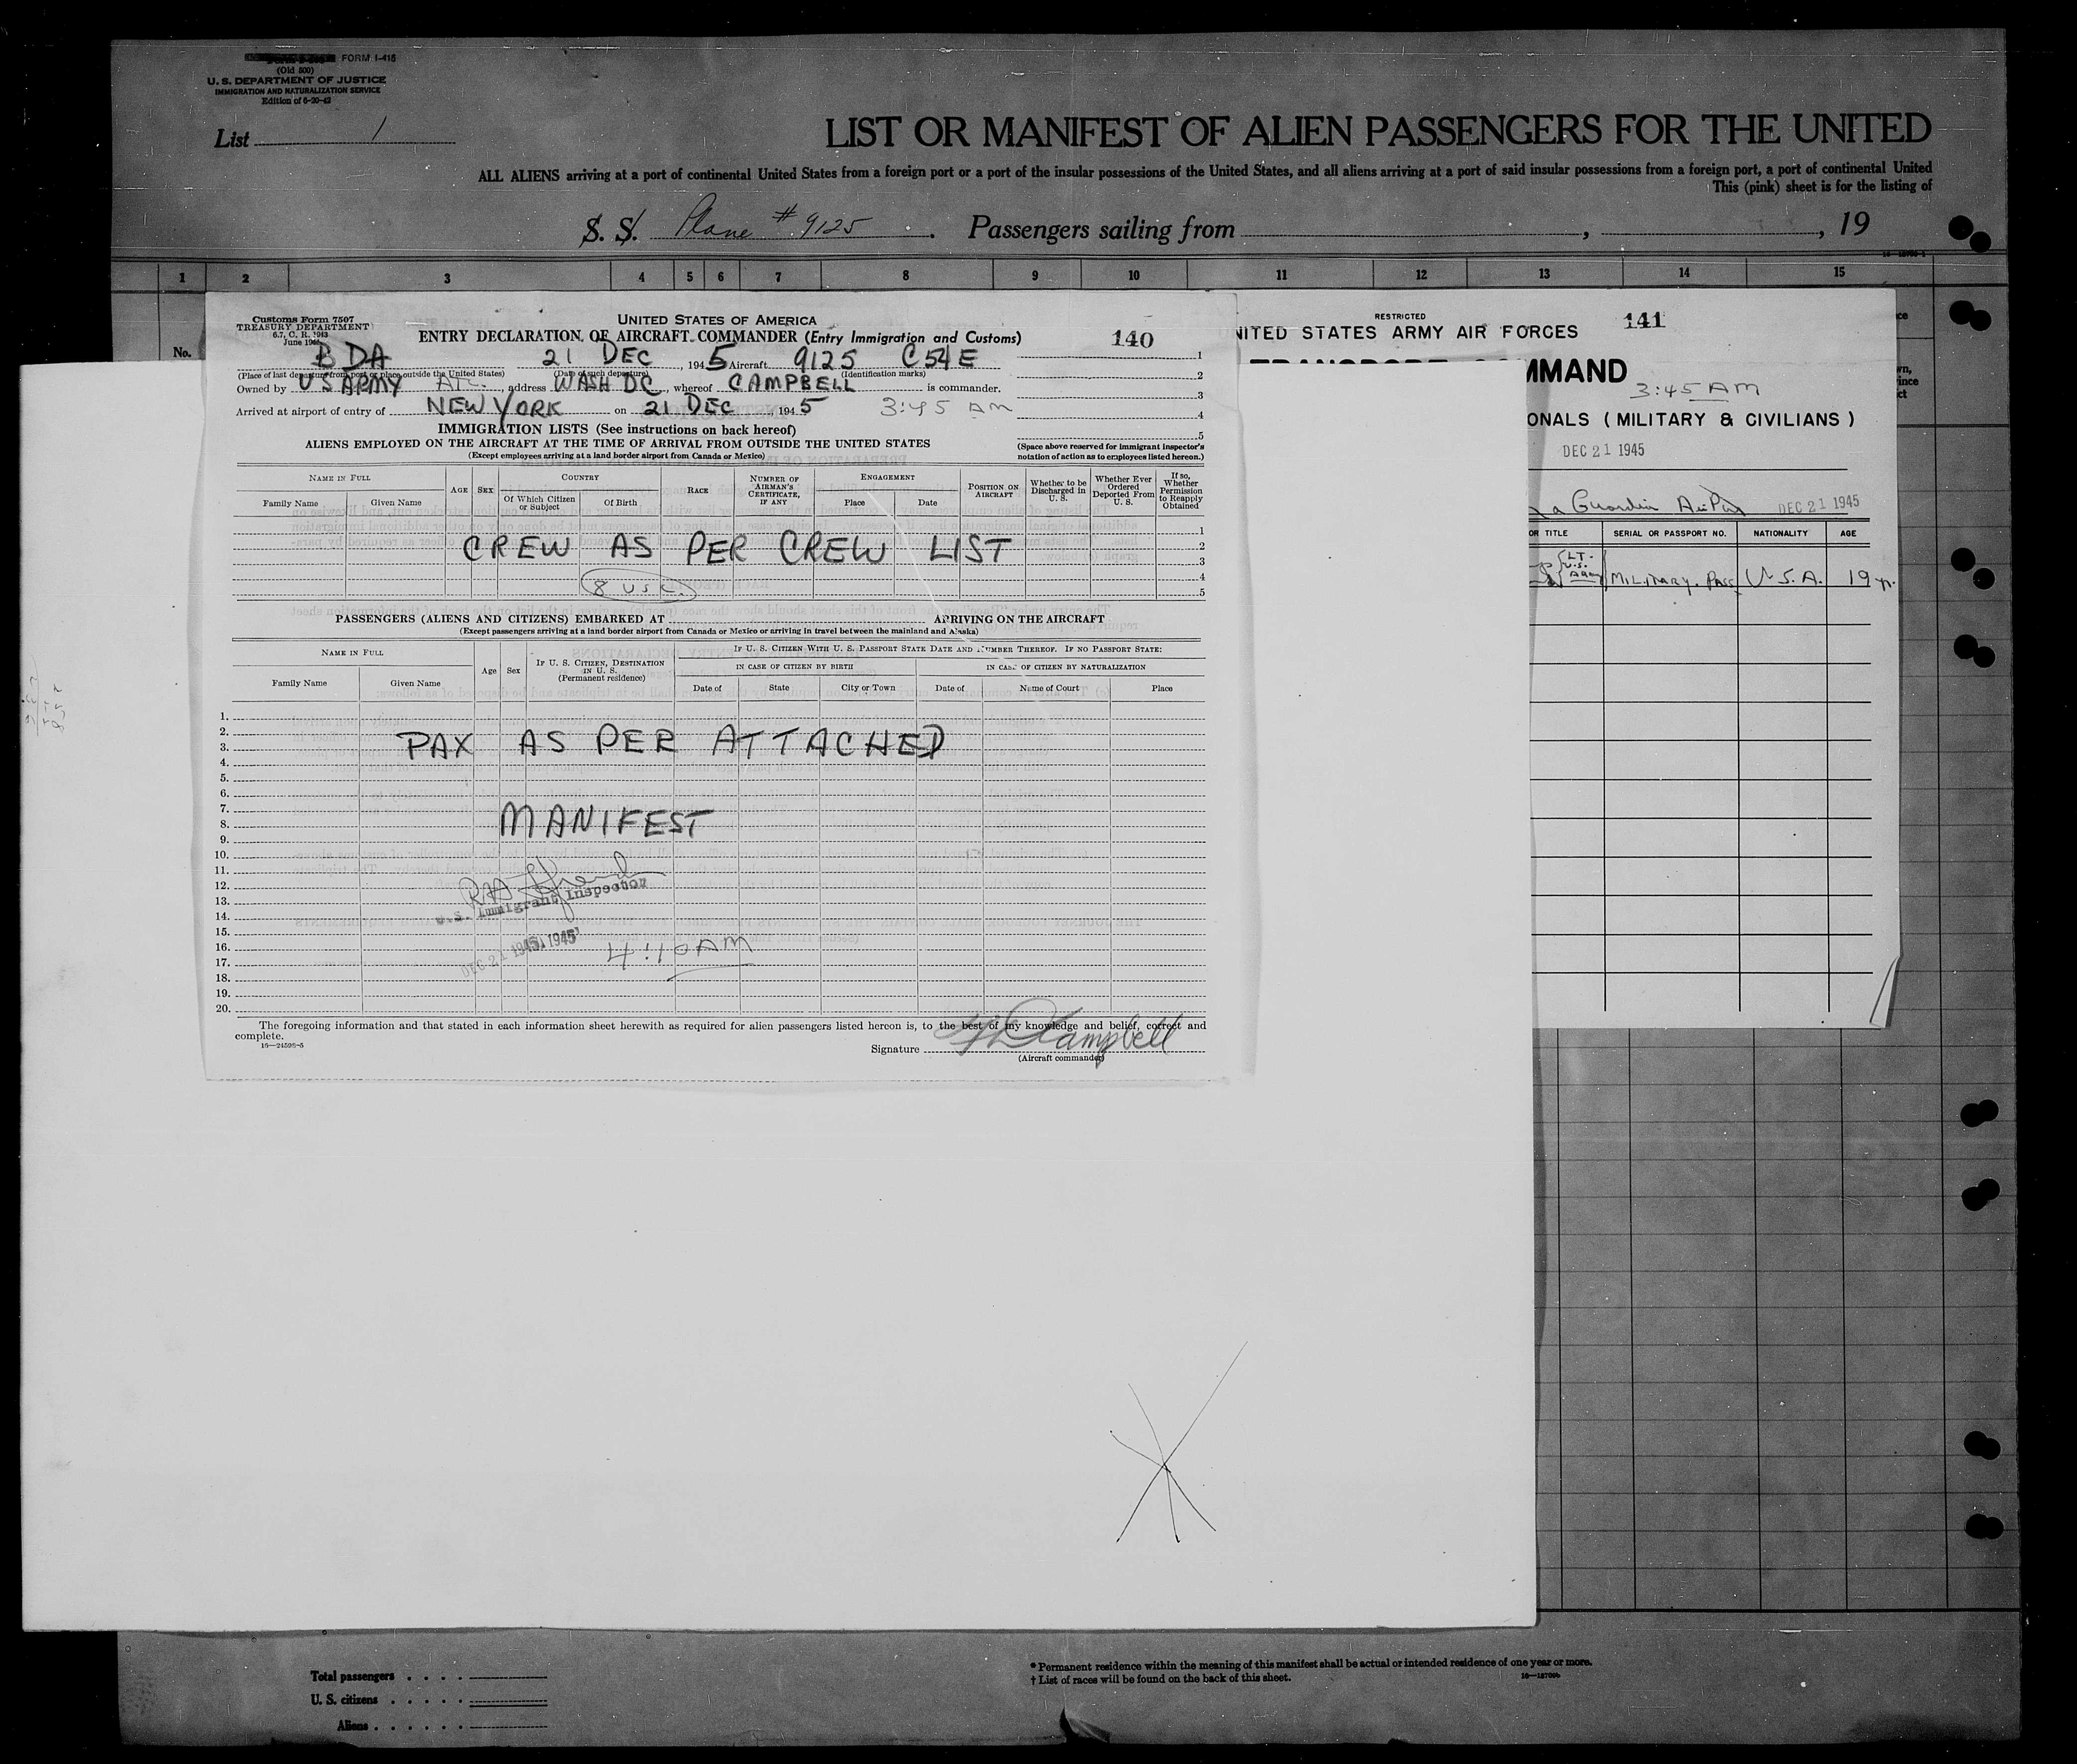 FORM I-415
(Old 500)
U. S. DEPARTMENT OF JUSTICE
IMMIGRATION AND NATURALIZATION SERVICE
Edition of 6-20-42
List 1
LIST OR MANIFEST OF ALIEN PASSENGERS FOR THE UNITED
ALL ALIENS arriving at a port of continental United States from a foreign port or a port of the insular possessions of the United States, and all aliens arriving at a port of said insular possessions from a foreign port, a port of continental United
This (pink) sheet is for the listing of
S. S. Plane # 9125. Passengers sailing from , , 19
1 2 3 4 5 6 7 8 9 10 11 12 13 14 15
No.
Customs Form 7507
TREASURY DEPARTMENT
June 1944
UNITED STATES OF AMERICA
ENTRY DECLARATION OF AIRCRAFT COMMANDER (Entry Immigration and Customs)
140
BDA 21 DEC, 1945 Aircraft 9125 C54E
(Place of last departure from port or place outside the United States) (Date of such departure) (Identification marks)
Owned by US ARMY ATC, address WASH DC, whereof CAMPBELL is commander.
Arrived at airport of entry of NEW YORK on 21 DEC 1945 3:45 AM
1
2
3
4
5
IMMIGRATION LISTS (See instructions on back hereof)
ALIENS EMPLOYED ON THE AIRCRAFT AT THE TIME OF ARRIVAL FROM OUTSIDE THE UNITED STATES
(Except employees arriving at a land border airport from Canada or Mexico)
(Space above reserved for immigrant inspector's notation of action as to employees listed hereon.)
NAME IN FULL
Family Name Given Name
AGE SEX
COUNTRY
Of Which Citizen or Subject Of Birth
RACE
NUMBER OF AIRMAN'S CERTIFICATE, IF ANY
ENGAGEMENT
Place Date
POSITION ON AIRCRAFT
Whether to be Discharged in U. S.
Whether Ever Ordered Deported From U. S.
If so, Whether Permission to Reapply Obtained
1
2
3
4
5
CREW AS PER CREW LIST
8 USC.
PASSENGERS (ALIENS AND CITIZENS) EMBARKED AT ARRIVING ON THE AIRCRAFT
(Except passengers arriving at a land border airport from Canada or Mexico or arriving in travel between the mainland and Alaska)
NAME IN FULL
Family Name Given Name
Age Sex
IF U. S. CITIZEN, DESTINATION IN U. S. (Permanent residence)
IF U. S. CITIZEN WITH U. S. PASSPORT STATE DATE AND NUMBER THEREOF. IF NO PASSPORT STATE:
IN CASE OF CITIZEN BY BIRTH IN CASE OF CITIZEN BY NATURALIZATION
Date of State City or Town Date of Name of Court Place
1.
2.
3.
4.
5.
6.
7.
8.
9.
10.
11.
12.
13.
14.
15.
16.
17.
18.
19.
20.
PAX AS PER ATTACHED
MANIFEST
U.S. Immigrant Inspector
DEC 21 1945 1945
4:10 AM
The foregoing information and that stated in each information sheet herewith as required for alien passengers listed hereon is, to the best of my knowledge and belief, correct and
complete.
16—24598-5
Signature Campbell
(Aircraft commander)
RESTRICTED
141
NITED STATES ARMY AIR FORCES
MMAND
3:45 AM
ONALS ( MILITARY & CIVILIANS )
DEC 21 1945
La Guardia AirPort DEC 21 1945
OR TITLE SERIAL OR PASSPORT NO. NATIONALITY AGE
LT. U.S. ARMY MILITARY. PASS U.S.A. 19 yr.
Total passengers
U. S. citizens
Aliens
* Permanent residence within the meaning of this manifest shall be actual or intended residence of one year or more.
† List of races will be found on the back of this sheet.